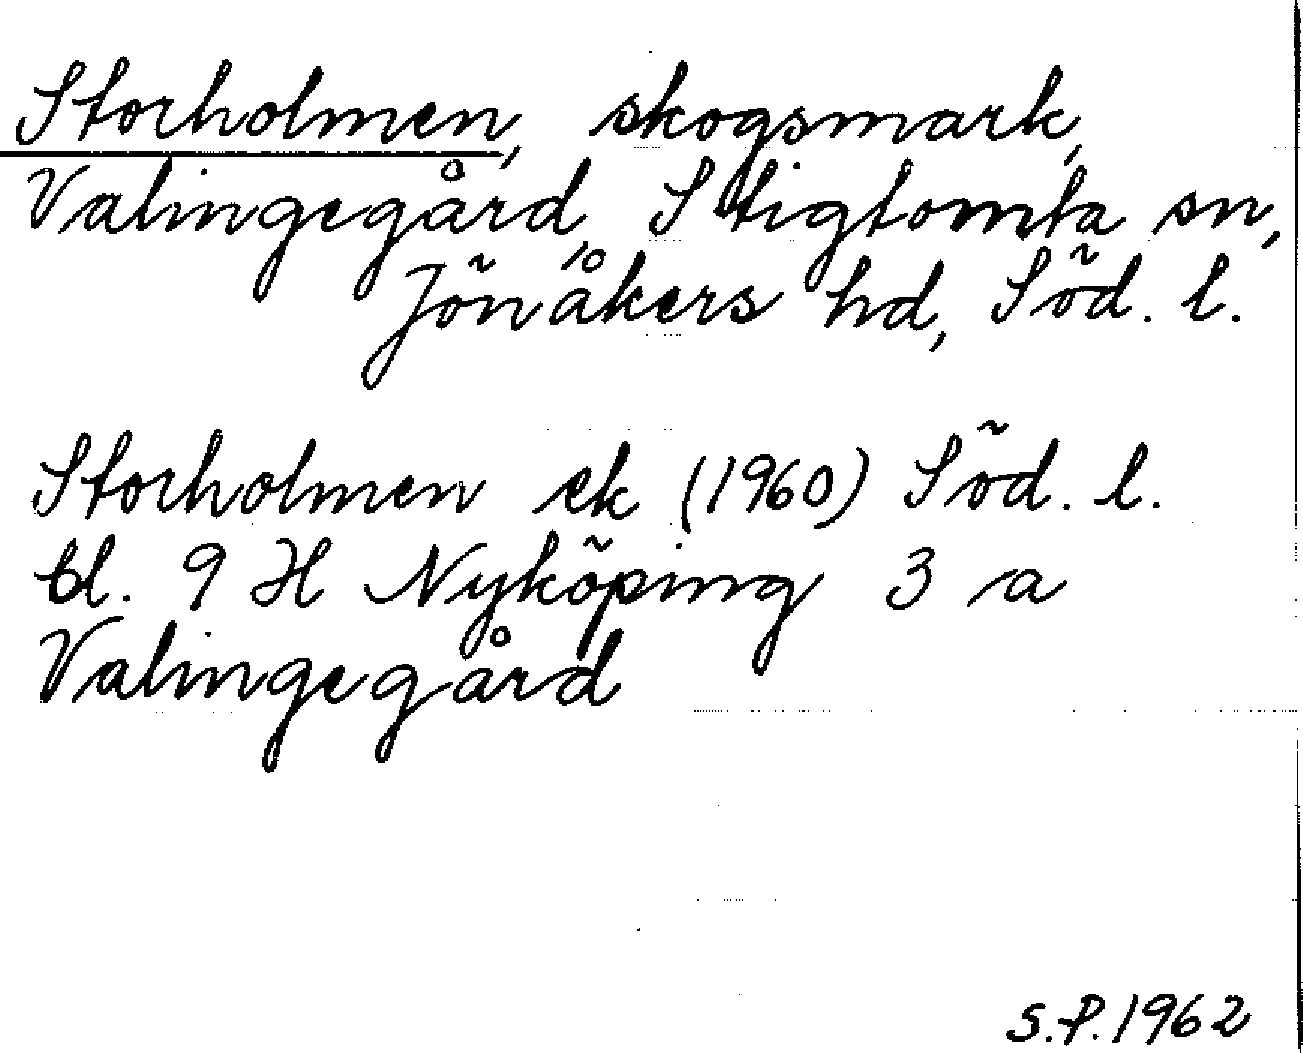 Storholmen, skogsmark,
Valingegård, Stigtomta sn,
Jönåkers hd, Söd. l.
Storholmen ek (1960) Söd. l.
bl. 9 H Nyköping 3 a
Valingegård
S.P. 1962